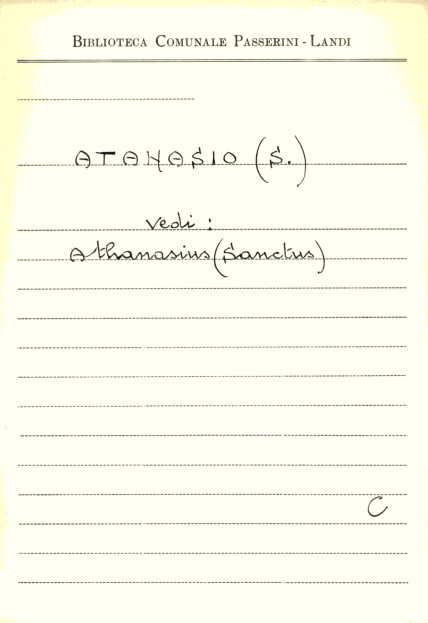 BIBLIOTECA COMUNALE PASSERINI - LANDI
ATANASIO (S.)
vedi :
Athanasius (Sanctus)
C